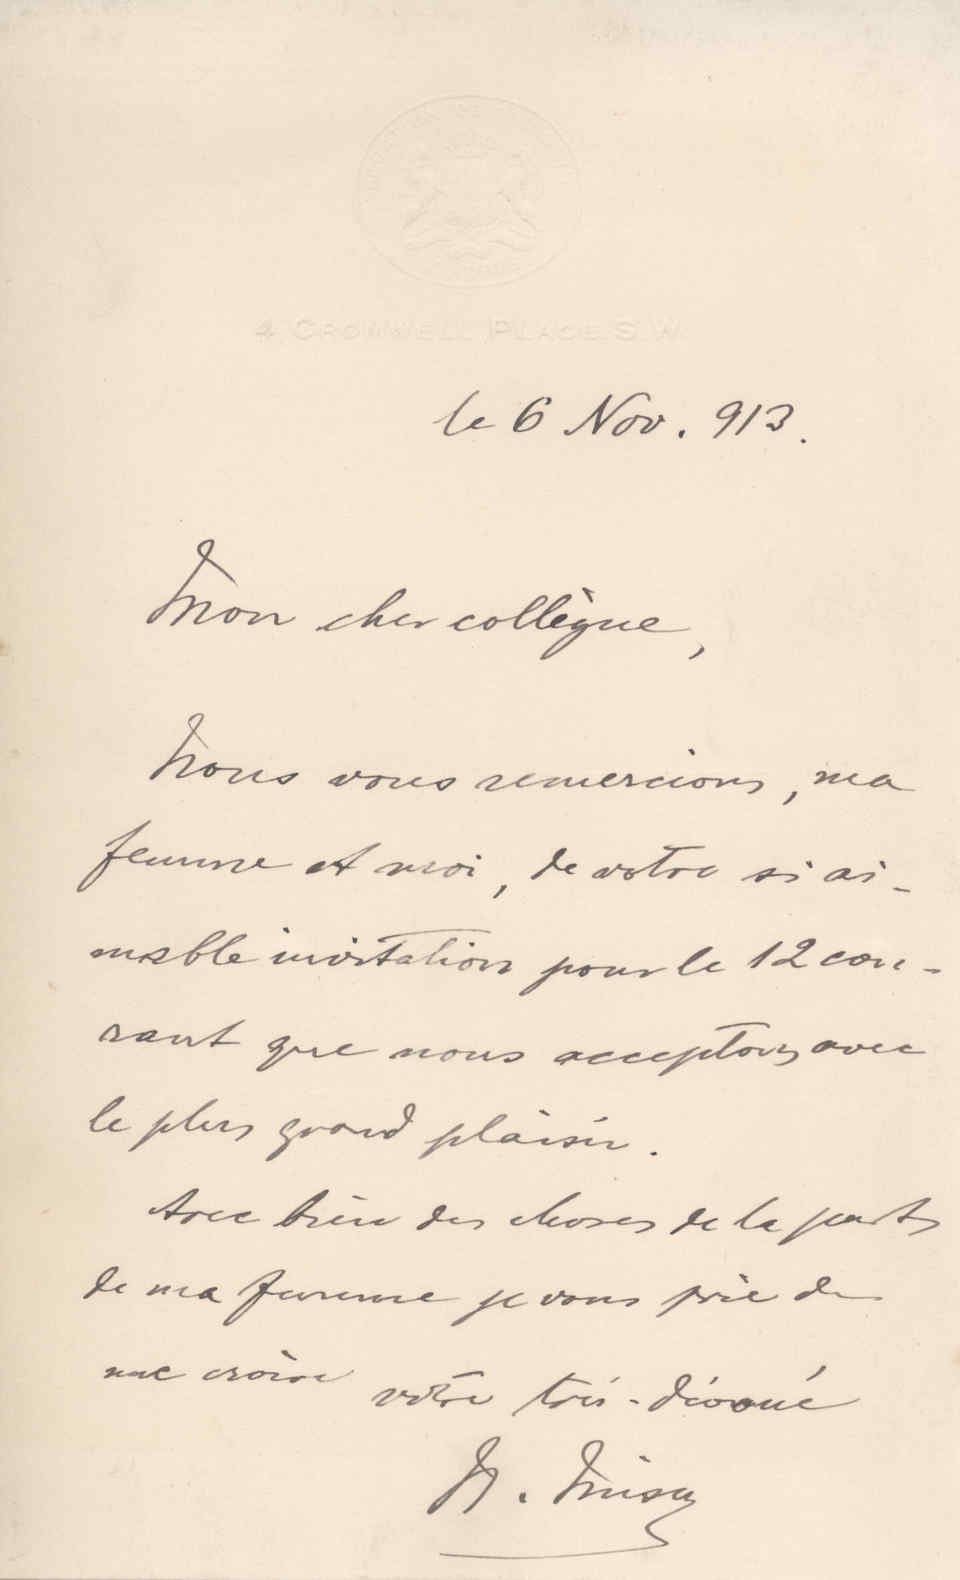 4, CROMWELL PLACE. S.W.
le 6 Nov. 913.
Mon cher collègue,
Nous vous remercions, ma
femme et moi, de votre si ai-
mable invitation pour le 12 cou-
rant que nous acceptons avec
le plus grand plaisir.
Avec bien des choses de la part
de ma femme je vous prie de
me croire
votre très-dévoué
N. Mișu